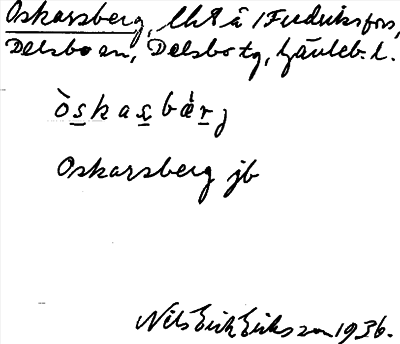 Oskarsberg, lht å /Fredriksfors,
Delsbo sn, Delsbo tg, Gävleb. l.
òskasbær̀j
Oskarsberg jb
Nils Erik Eriksson 1936.